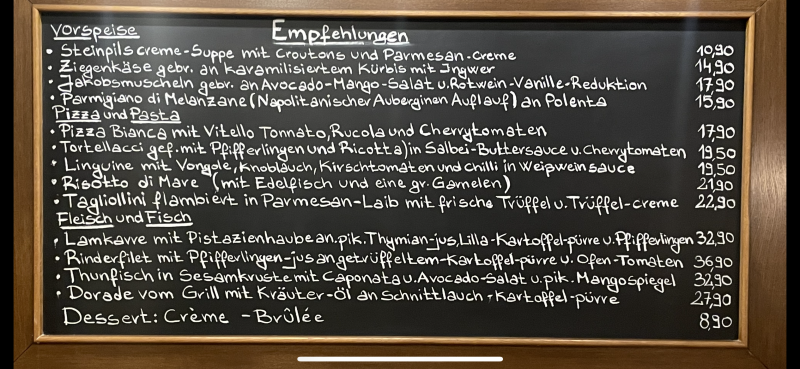 Vorspeise
Empfehlungen
• Steinpilscreme-Suppe mit Croutons und Parmesan-creme 10,90
• Ziegenkäse gebr. an karamilisiertem Kürbis mit Jngwer 14,90
• Jakobsmuscheln gebr. an Avocado-Mango-Salat u. Rotwein-Vanille-Reduktion 17,90
• Parmigiano di Melanzane (Napolitanischer Auberginen Auflauf) an Polenta 15,90
Pizza und Pasta
• Pizza Bianca mit Vitello Tonnato, Rucola und Cherrytomaten 17,90
• Tortellacci gef. mit Pfifferlingen und Ricotta) in Salbei-Buttersauce u. Cherrytomaten 19,50
• Linguine mit Vongole, Knoblauch, Kirschtomaten und chilli in Weipwein sauce 19,50
• Risotto di Mare (mit Edelfisch und eine gr. Garnelen) 21,90
• Tagliollini flambiert in Parmesan-Laib mit frische Trüffel u. Trüffel-creme 22,90
Fleisch und Fisch
• Lamkarre mit Pistazienhaube an. pik. Thymian-jus, Lilla-Kartoffel-pürre u. Pfifferlingen 32,90
• Rinderfilet mit Pfifferlingen-jus an getrüffeltem-Kartoffel-pürre u. Ofen-Tomaten 36,90
• Thunfisch in Sesamkruste mit Caponata u. Avocado-Salat u. pik. Mangospiegel 32,90
• Dorade vom Grill mit Kräuter-Öl an Schnittlauch-Kartoffel-pürre 27,90
Dessert: Crème-Brûlée 8,90